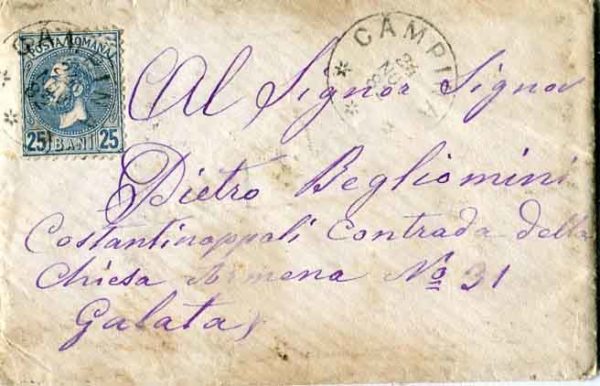 POSTA ROMANA
25 BANI 25
CAMPIN
Al Signor Signor
Pietro Begliomini
Costantinoppoli Contrada della
Chiesa Armena No 31
Galata